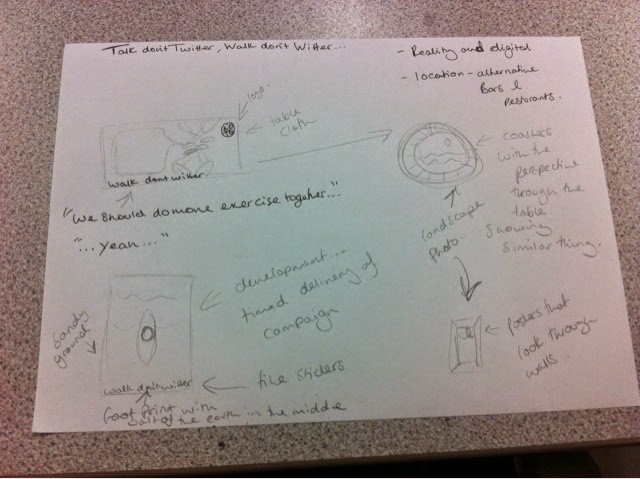 Talk don't Twitter, Walk don't Witter...
- Reality and digital
- location - alternative
Bars &
resturants.
logo.
table
cloth
walk dont witter
coasters
with the
perspective
through the
table
showing
similar thing.
landscape
photo.
"We should do more exercise together..."
"...yeah..."
development...
timed delivery of
campaign
sandy
ground
walk don't witter
tile stickers
foot print with
salt of the earth in the middle
posters that
look through
walls.